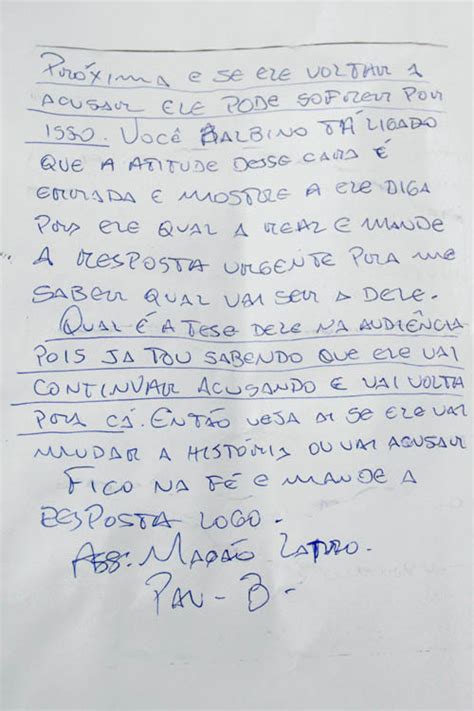 PRÓXIMA E SE ELE VOLTAR A
ACUSAR ELE PODE SOFRER POR
ISSO. VOCÊ BALBINO TÁ LIGADO
QUE A ATITUDE DESSE CARA É
ERRADA E MOSTRE A ELE DIGA
PRA ELE QUAL A REAL E MANDE
A RESPOSTA URGENTE PRA ME
SABER QUAL VAI SER A DELE.
QUAL É A TESE DELE NA AUDIÊNCIA
POIS JA TOU SABENDO QUE ELE VAI
CONTINUAR ACUSANDO E VAI VOLTA
PRA CÁ. ENTÃO VEJA AI SE ELE VAI
MUDAR A HISTÓRIA OU VAI ACUSAR
FICO NA FÉ E MANDE A
RESPOSTA LOGO.
ASS: MAGÃO
PAV-B-